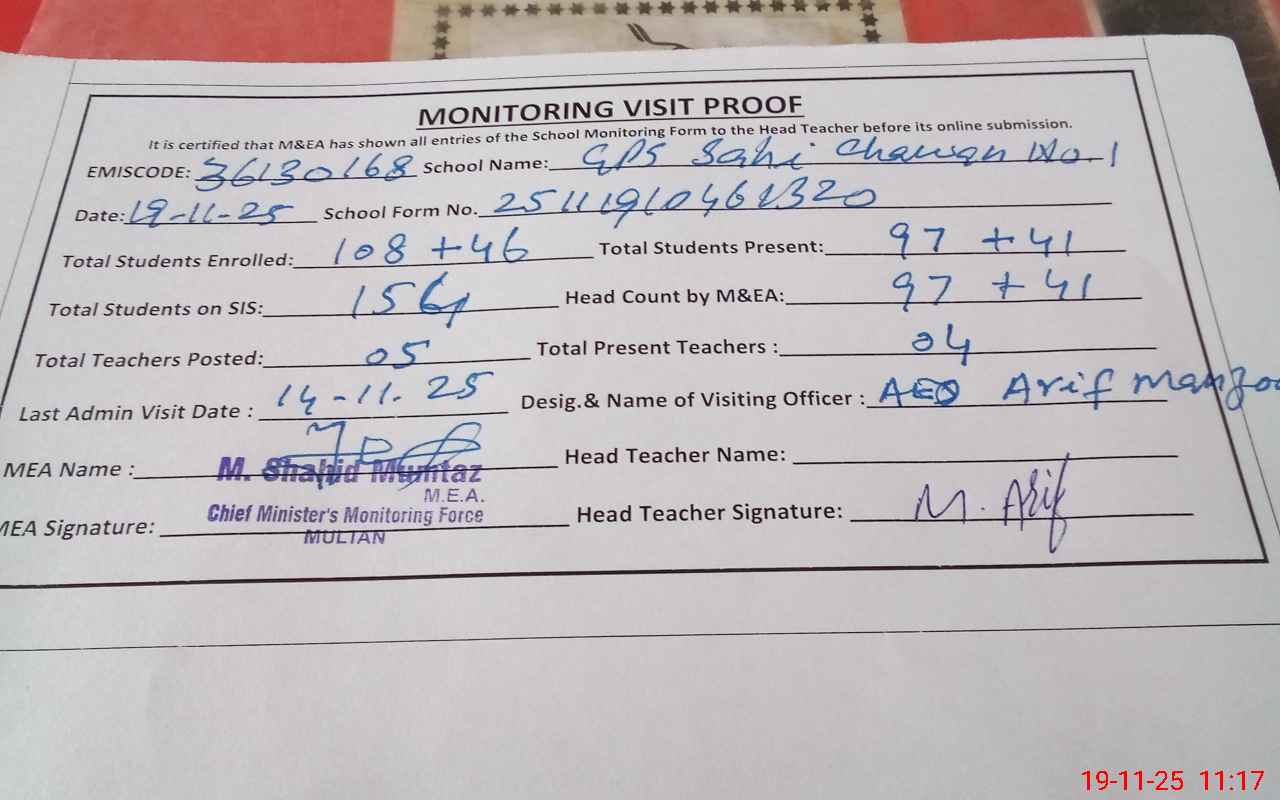 MONITORING VISIT PROOF
It is certified that M&EA has shown all entries of the School Monitoring Form to the Head Teacher before its online submission.
EMISCODE: 36130168 School Name: GPS Sahi Chawan No. 1
Date: 19-11-25 School Form No. 25111910461320
Total Students Enrolled: 108 + 46 Total Students Present: 97 + 41
Total Students on SIS: 154 Head Count by M&EA: 97 + 41
Total Teachers Posted: 05 Total Present Teachers : 04
Last Admin Visit Date : 14-11-25 Desig.& Name of Visiting Officer : AEO Arif Manzoo
MEA Name : M. Shahid Mumtaz Head Teacher Name:
M.E.A.
Chief Minister's Monitoring Force
MEA Signature: MULTAN Head Teacher Signature: M. Arif
19-11-25 11:17